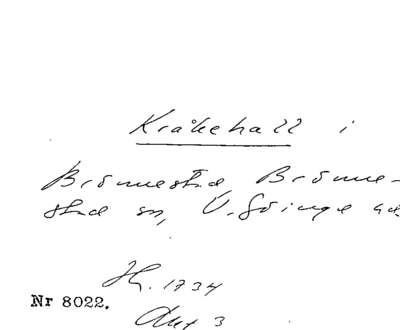 Kråkehall i
Brönnestad Brönne-
stad sn, V. Göinge hd
Jb. 1734
Nr 8022.
Akt 3